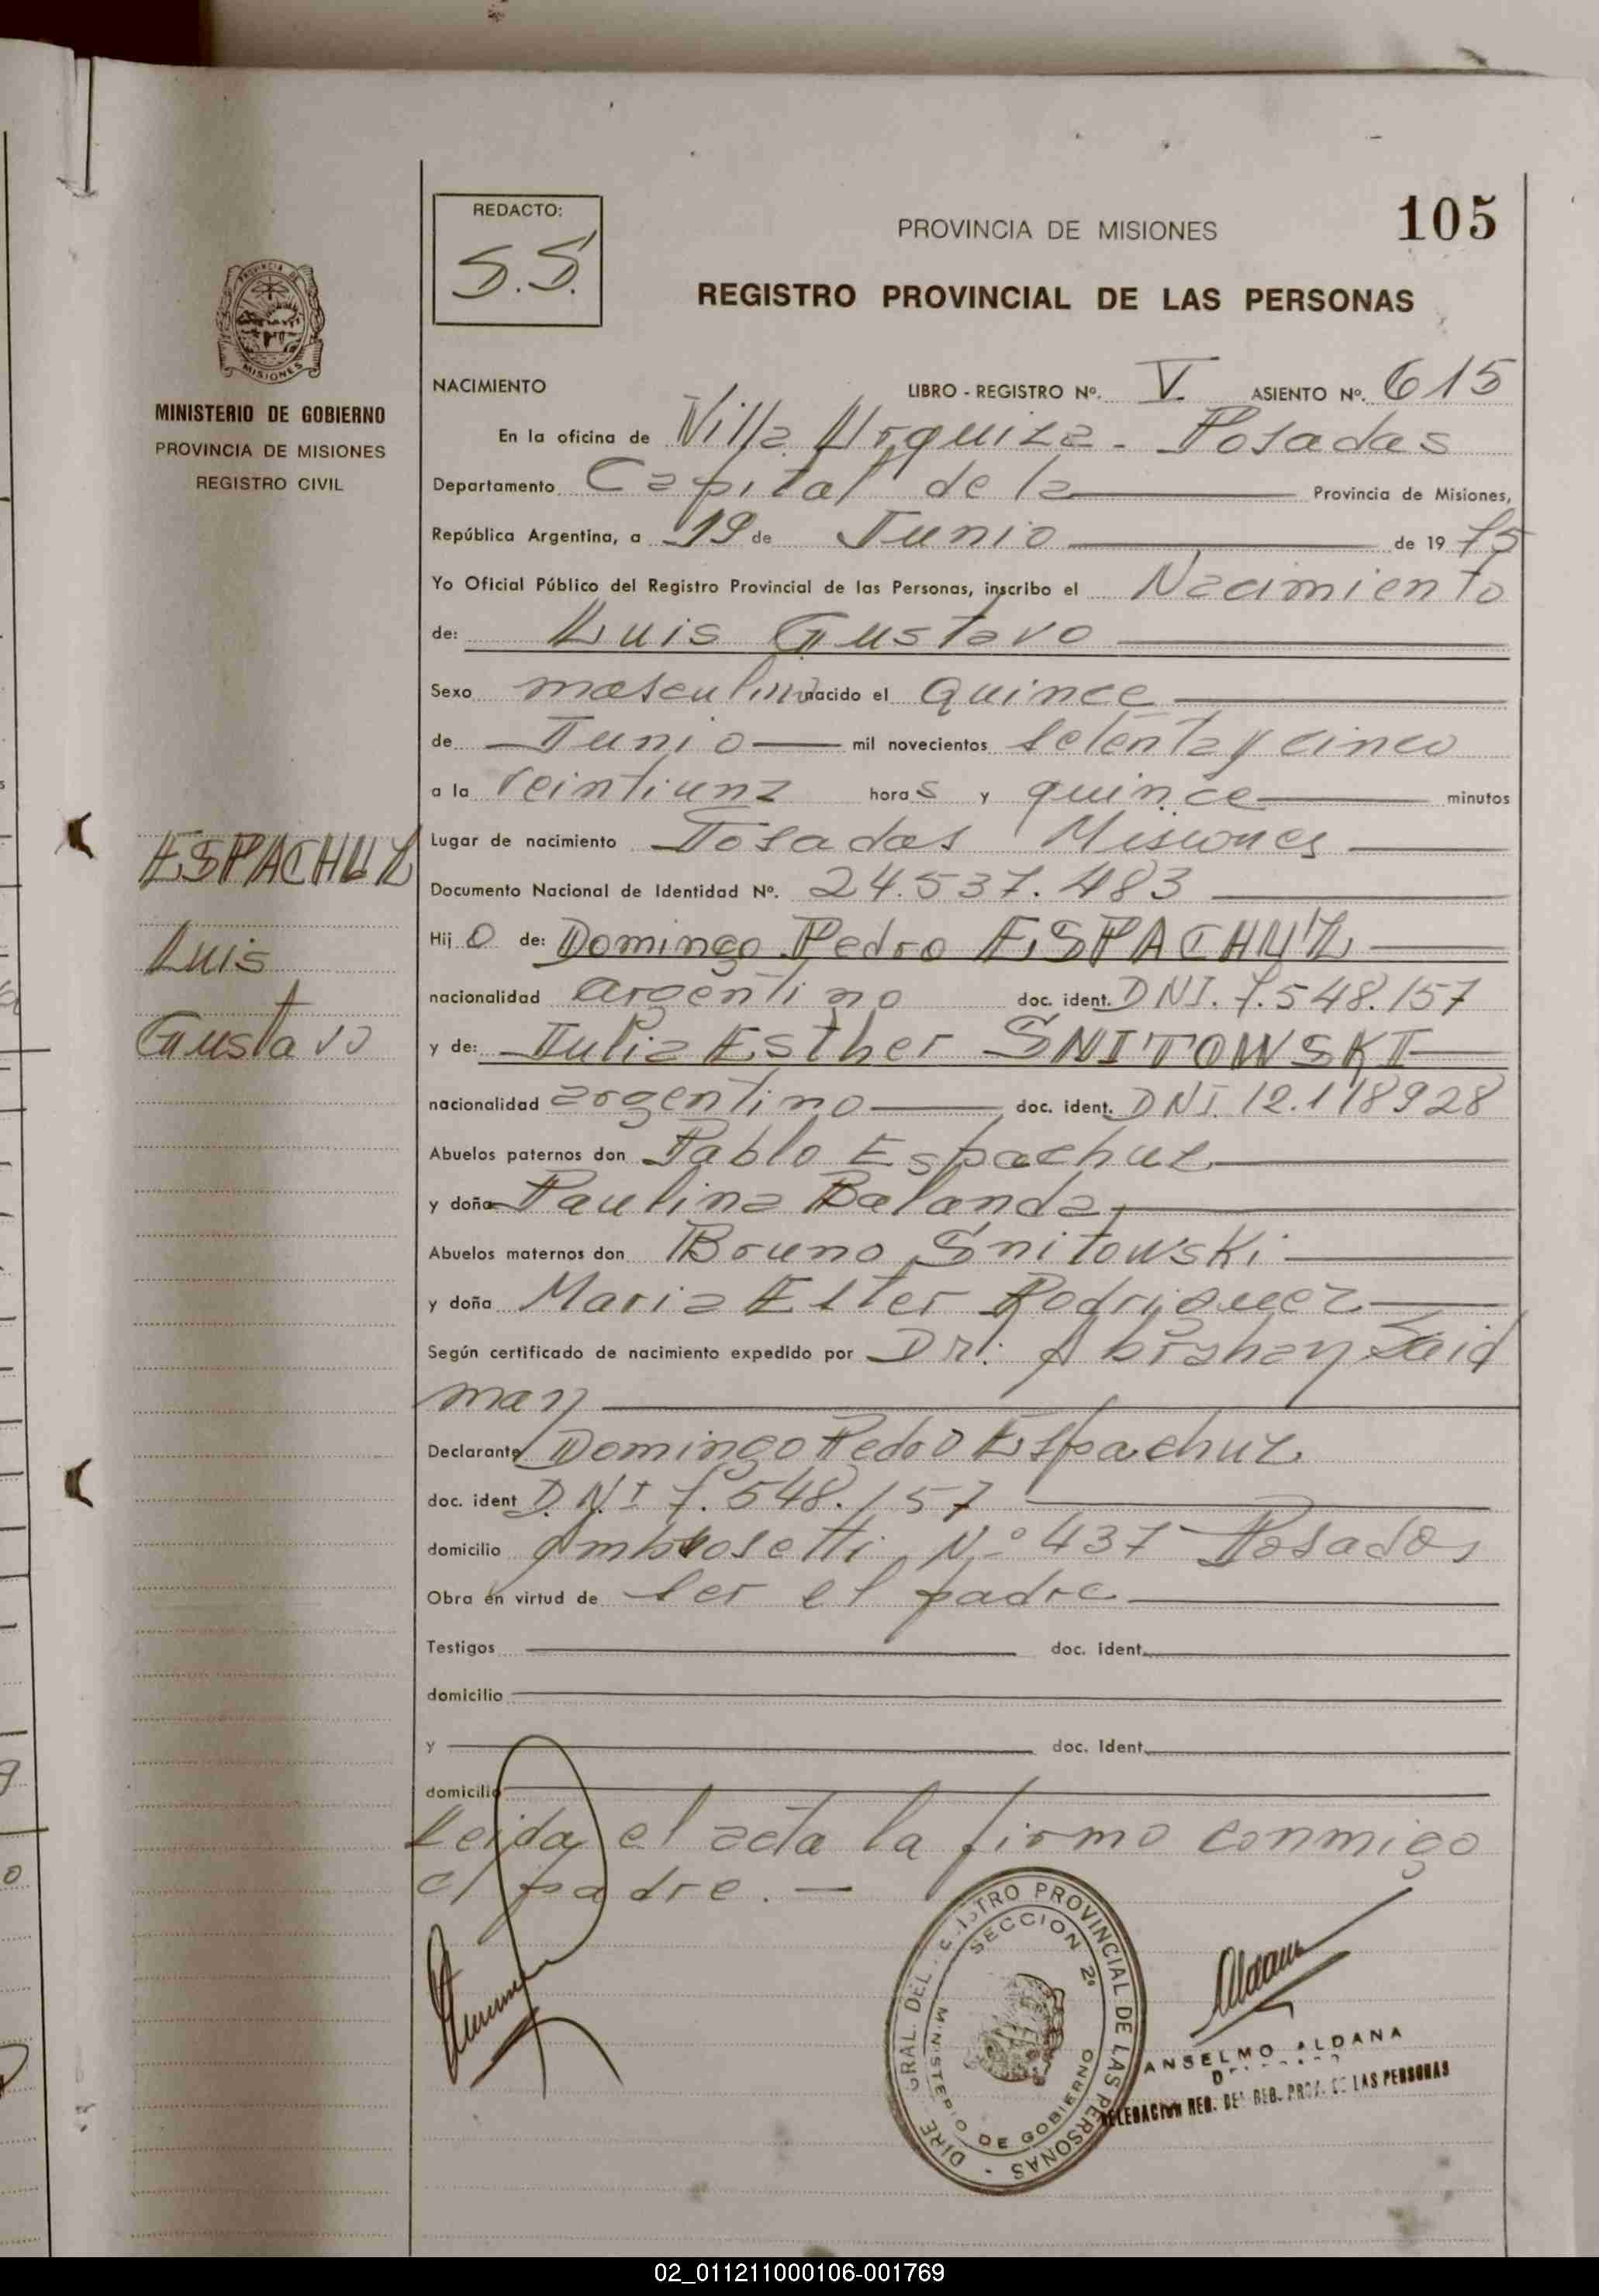 105
REDACTO:
S.S.
PROVINCIA DE MISIONES
REGISTRO PROVINCIAL DE LAS PERSONAS
MISIONES
MINISTERIO DE GOBIERNO
PROVINCIA DE MISIONES
REGISTRO CIVIL
ESPACHUZ
Luis
Gustavo
NACIMIENTO LIBRO - REGISTRO Nº. V. ASIENTO Nº. 615
En la oficina de Villa Urquiza - Posadas
Departamento Capital de la Provincia de Misiones,
República Argentina, a 19 de Junio de 1975
Yo Oficial Público del Registro Provincial de las Personas, inscribo el Nacimiento
de: Luis Gustavo
Sexo masculino nacido el Quince
de Junio mil novecientos setenta y cinco
a la veintiuna horas y quince minutos
Lugar de nacimiento Posadas Misiones
Documento Nacional de Identidad Nº. 24.537.483
Hijo de: Domingo Pedro ESPACHUZ
nacionalidad argentino doc. ident. DNI. 7.548.157
y de: Julia Esther SNITOWSKI
nacionalidad argentino doc. ident. DNI. 12.118928
Abuelos paternos don Pablo Espachuz
y doña Paulina Balanda
Abuelos maternos don Bruno Snitowski
y doña Maria Ester Rodriguez
Según certificado de nacimiento expedido por Dr. Abrahan Said
man
Declarante Domingo Pedro Espachuz
doc. ident D.N.I 7.548.157
domicilio Ambrosetti Nº 437 Posadas
Obra en virtud de ser el padre
Testigos doc. ident.
domicilio
y doc. Ident.
domicilio
Leida el acta la firmo conmigo
el padre.-
GRAL. DEL PROVINCIAL DE LAS PERSONAS
SECCION 2º
MINISTERIO DE GOBIERNO
ANSELMO ALDANA
DELEGACION REG. DEL REG. PROV. DE LAS PERSONAS
02_011211000106-001769